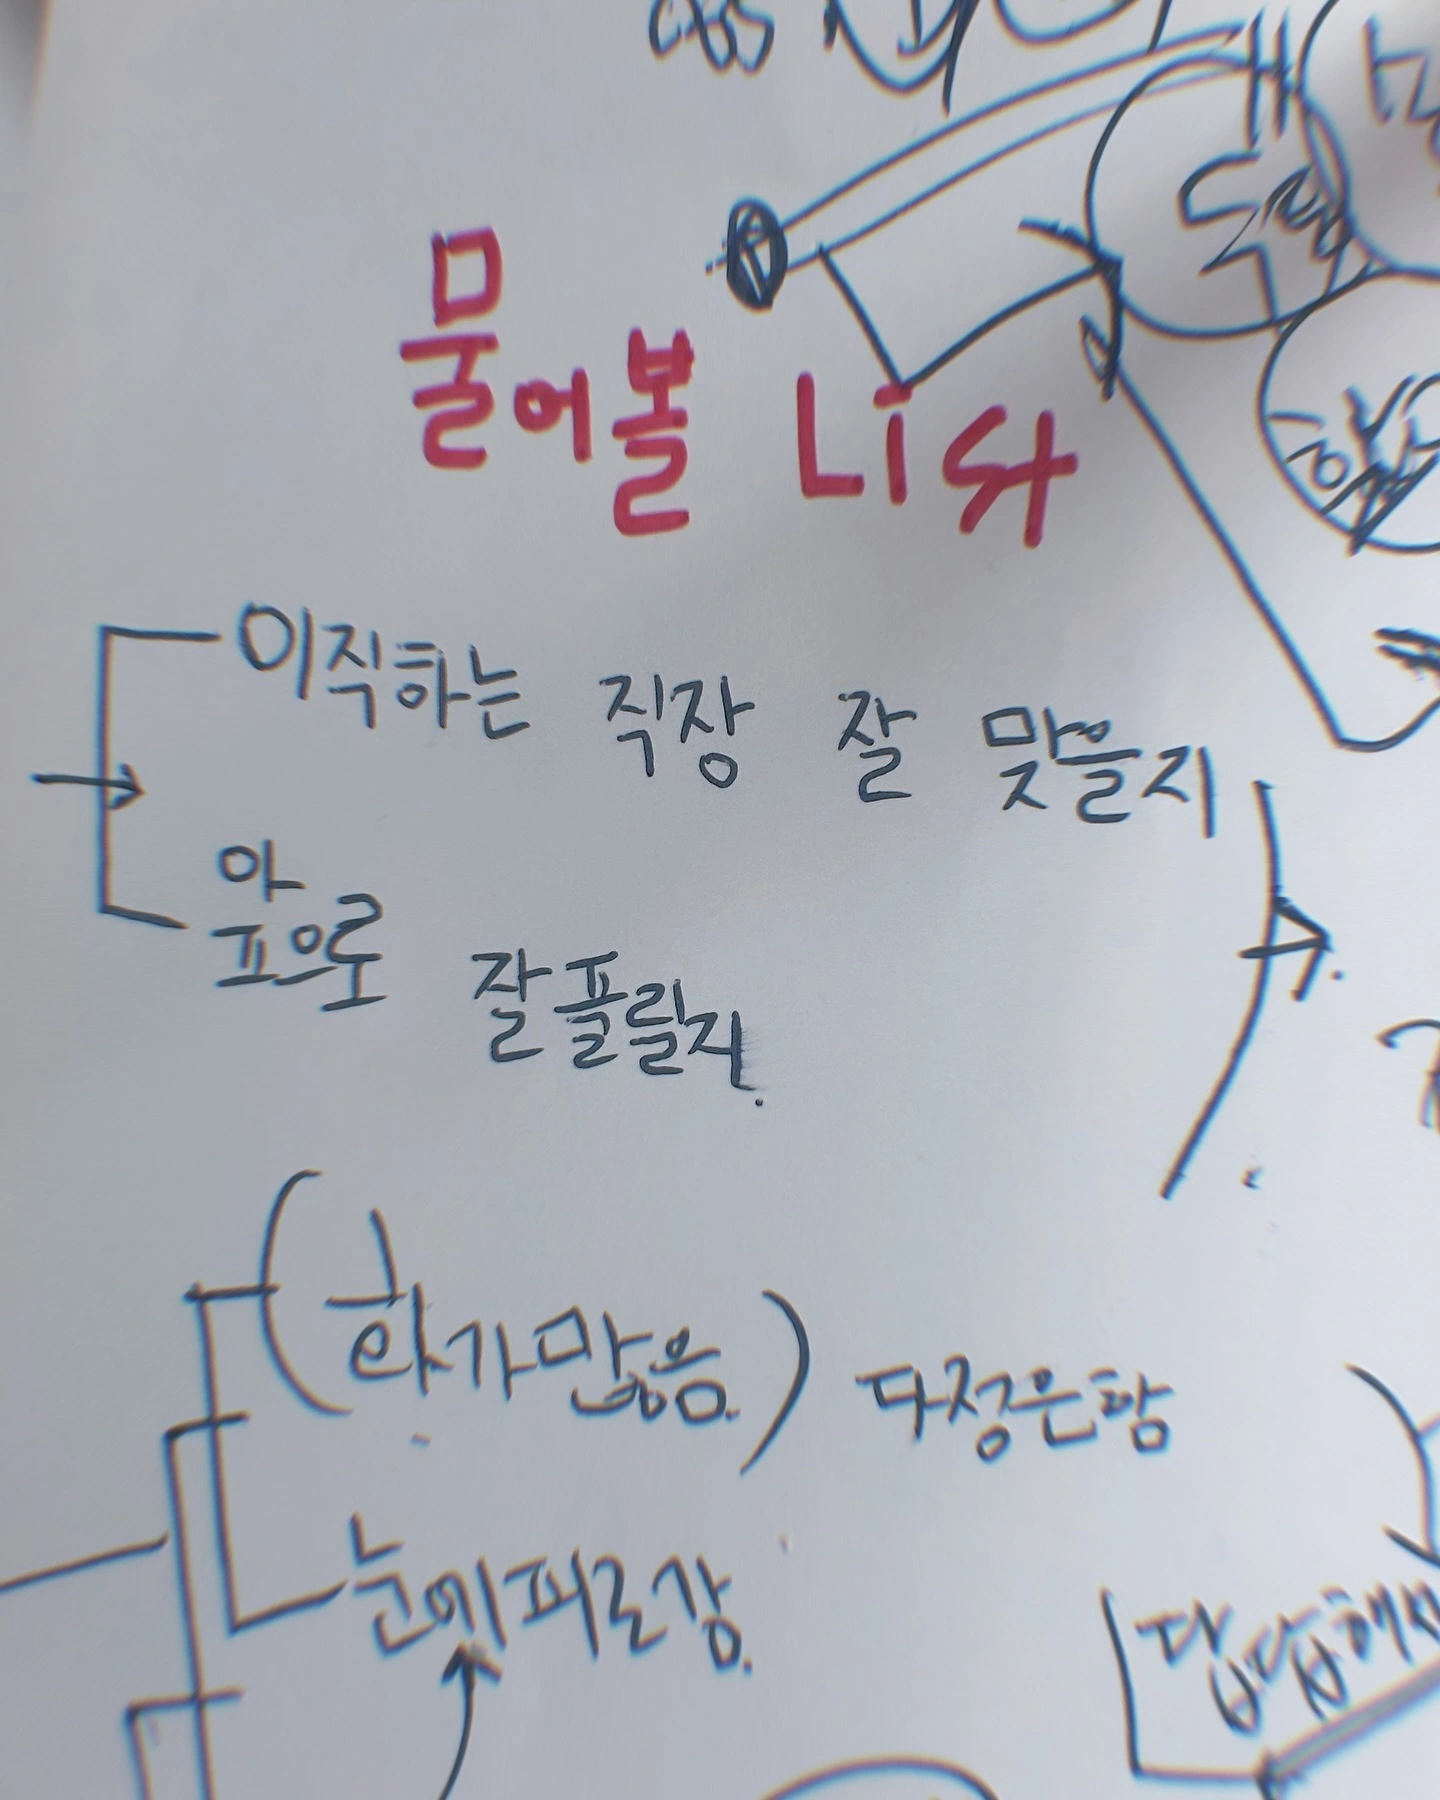 물어볼 List
이직하는 직장 잘 맞을지
앞으로 잘풀릴지.
(화가많음.) 다정은함
눈에피로감.
답답해서